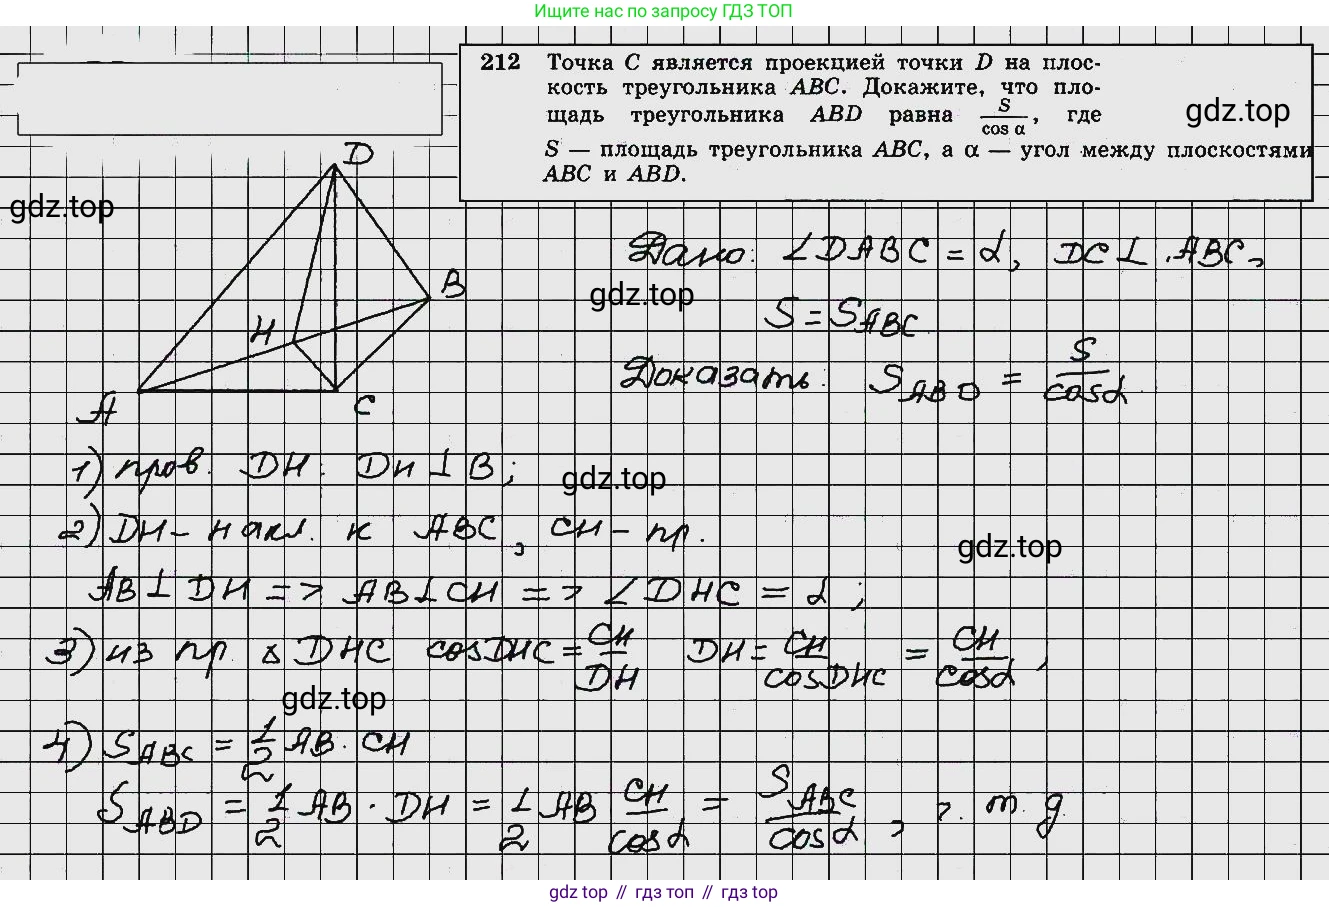 Ищите нас по запросу ГДЗ ТОП
212 Точка C является проекцией точки D на плос-
кость треугольника ABC. Докажите, что пло-
щадь треугольника ABD равна S/cos α, где
S — площадь треугольника ABC, а α — угол между плоскостями
ABC и ABD.
gdz.top
gdz.top
D
B
H
A
C
Дано: ∠DABC = α, DC⊥ABC,
gdz.top
S = S_ABC
Доказать: S_ABD = S/cosα
1) пров. DH: DH ⊥ B;
gdz.top
2) DH – накл. к ABC, CH – пр.
gdz.top
AB⊥DH => AB⊥CH => ∠DHC = α;
3) из пр. △DHC cosDHC = CH/DH DH = CH/cosDHC = CH/cosα;
gdz.top
4) S_ABC = 1/2 AB · CH
S_ABD = 1/2 AB · DH = 1/2 AB CH/cosα = S_ABC/cosα, ч. т. д.
gdz top // гдз топ // гdz top